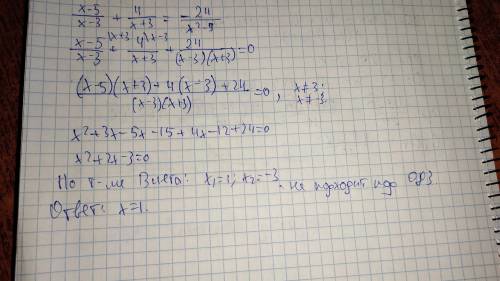 (x-5)/(x-3) + 4/(x+3) = -24/(x²-9)
(x-5)/(x-3) |x+3 + 4/(x+3) |x-3 + 24/((x-3)(x+3)) = 0
((x-5)(x+3)+4(x-3)+24)/((x-3)(x+3)) = 0, x≠3; x≠-3
x²+3x-5x-15+4x-12+24=0
x²+2x-3=0
По т-ме Виета: x₁=1; x₂=-3 не подходит под ОДЗ
Ответ: x=1.